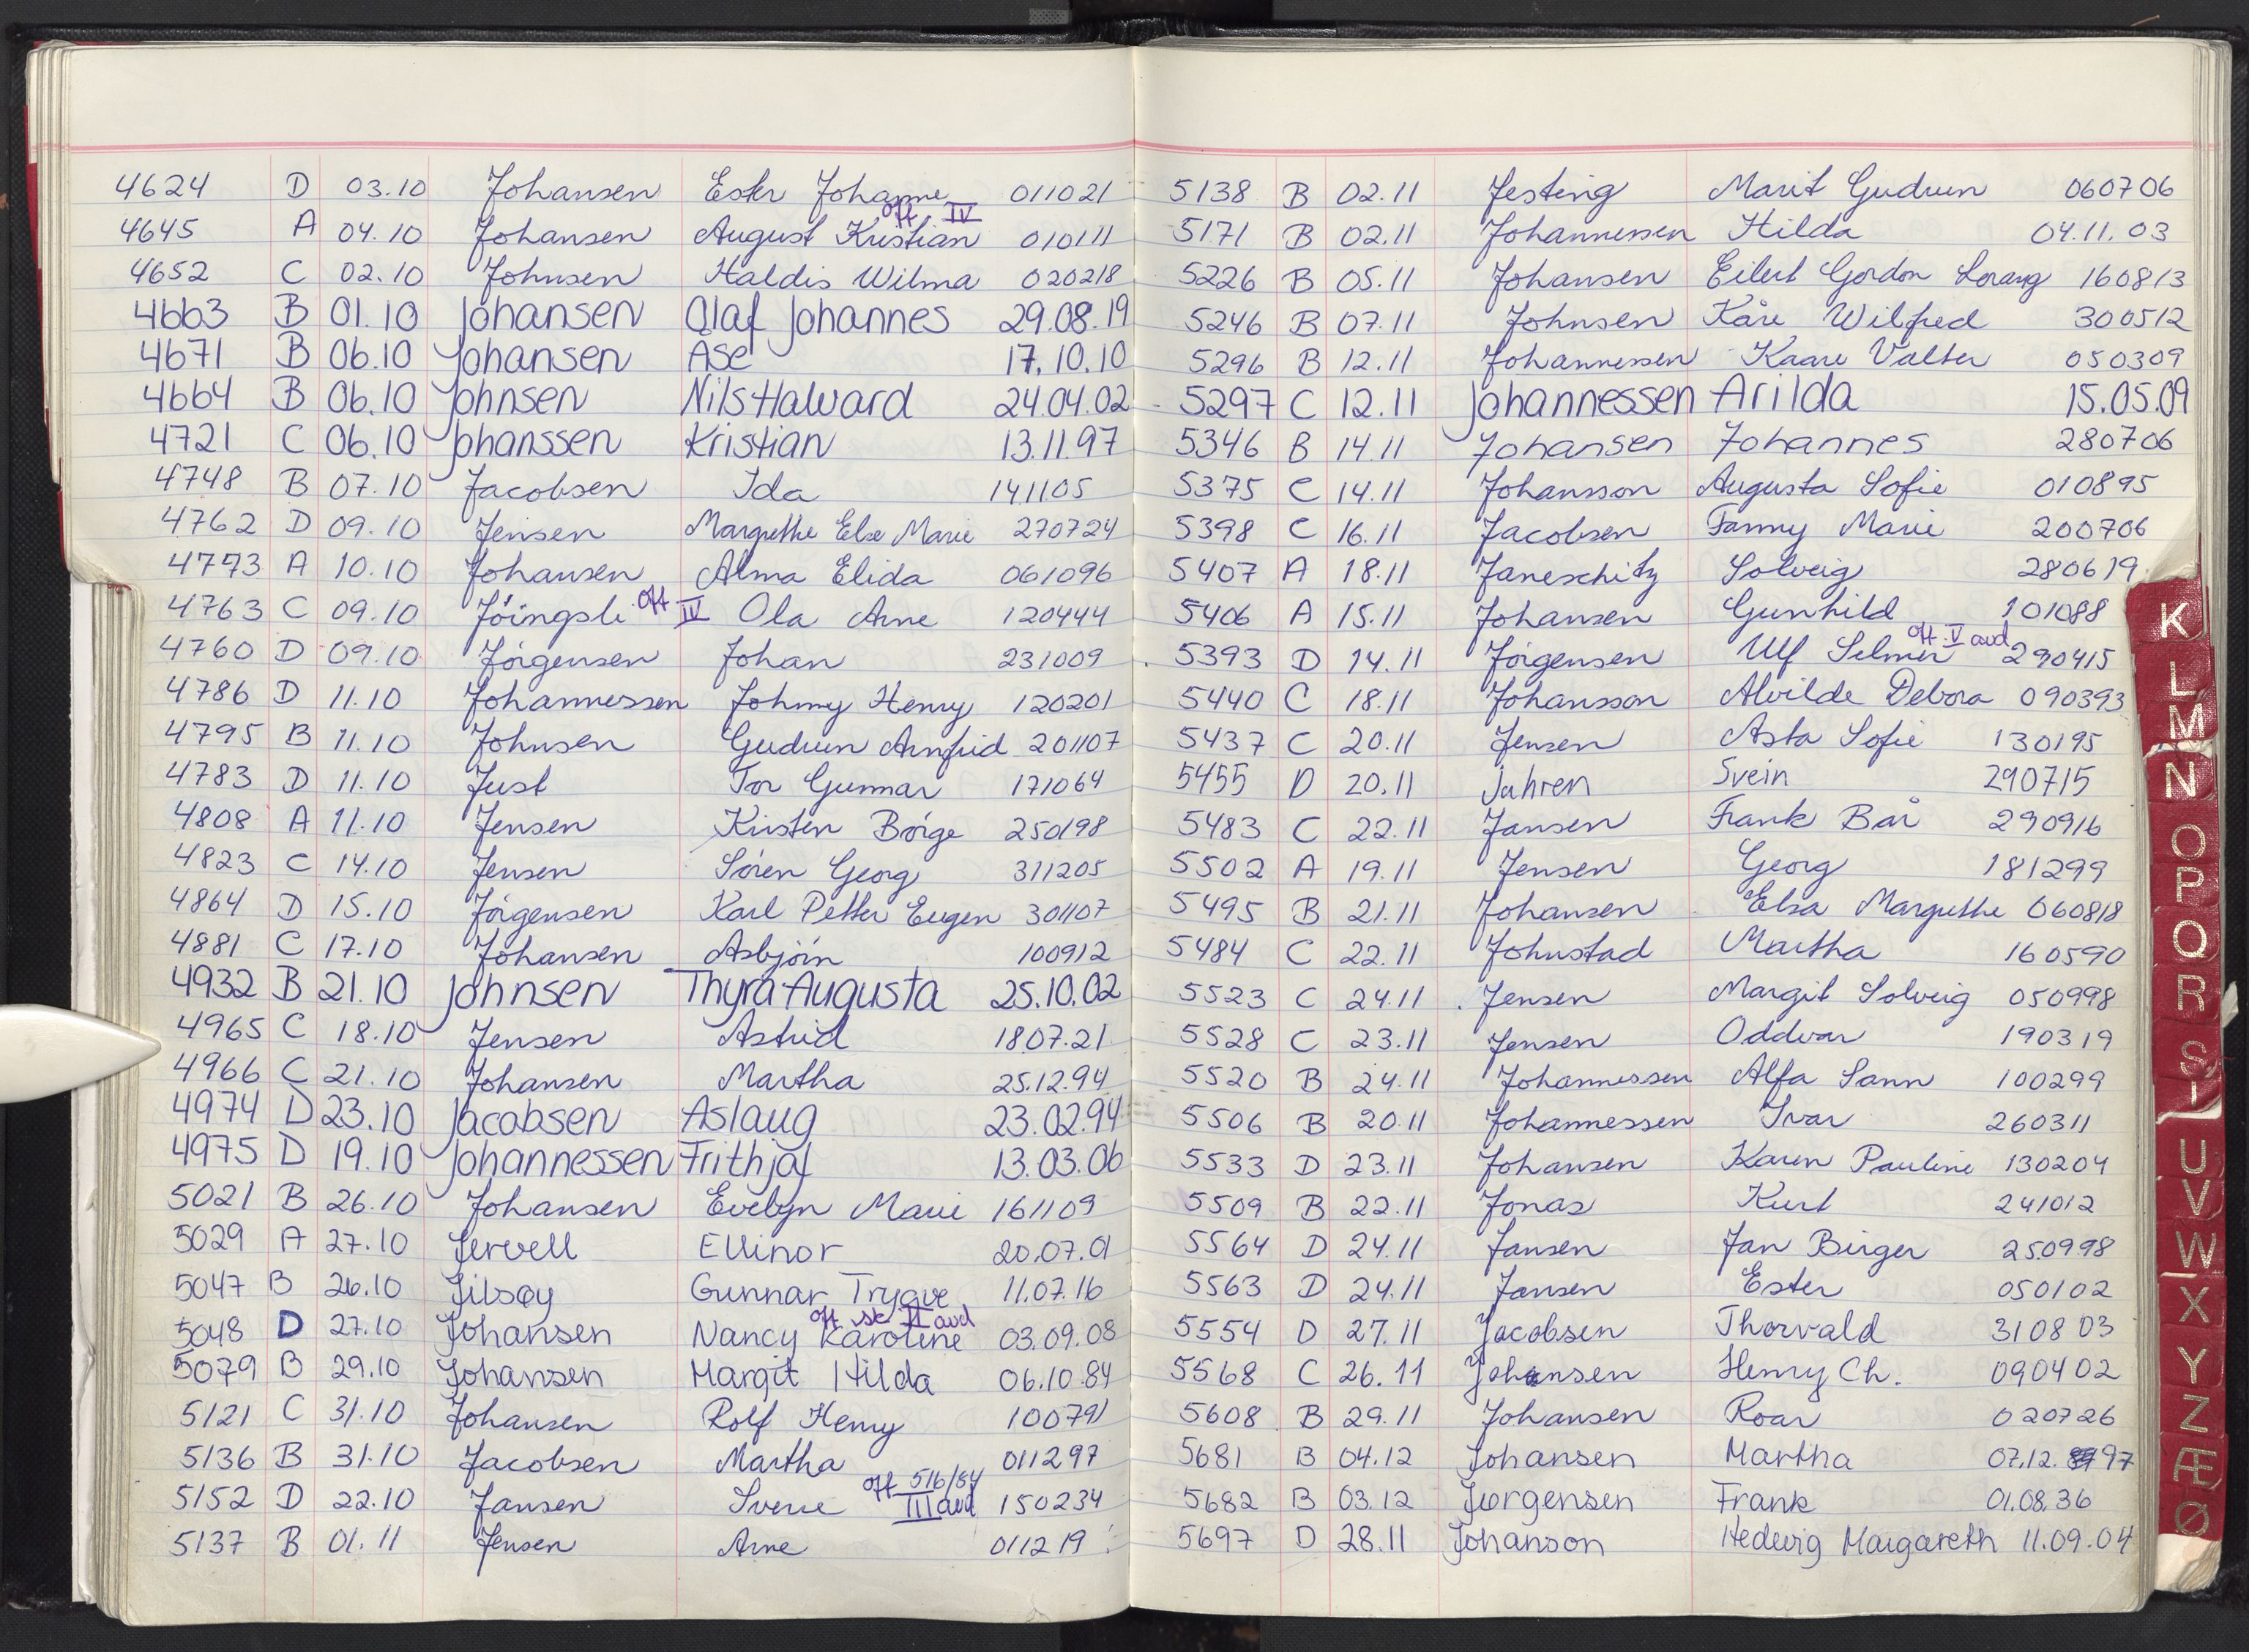 4624 D 03.10 Johansen Ester Johanne 011021
off IV
4645 A 04.10 Johansen August Kristian 010111
4652 C 02.10 Johnsen Haldis Wilma 020218
4663 B 01.10 Johansen Olaf Johannes 29.08.19
4671 B 06.10 Johansen Åse 17.10.10
4664 B 06.10 Johnsen Nils Halvard 24.04.02
4721 C 06.10 Johanssen Kristian 13.11.97
4748 B 07.10 Jacobsen Ida 141105
4762 D 09.10 Jensen Margrethe Else Marie 270724
4773 A 10.10 Johansen Alma Elida 061096
4763 C 09.10 Jöingsli off IV Ola Arne 120444
4760 D 09.10 Jörgensen Johan 231009
4786 D 11.10 Johannessen Johnny Henry 120201
4795 B 11.10 Johnsen Gudrun Arnfrid 201107
4783 D 11.10 Just Tor Gunnar 171064
4808 A 11.10 Jensen Kirsten Börge 250198
4823 C 14.10 Jensen Sören Georg 311205
4864 D 15.10 Jörgensen Karl Petter Eugen 301107
4881 C 17.10 Johansen Asbjörn 100912
4932 B 21.10 Johnsen Thyra Augusta 25.10.02
4965 C 18.10 Jensen Astrid 18.07.21
4966 C 21.10 Johansen Martha 25.12.94
4974 D 23.10 Jacobsen Aslaug 23.02.94
4975 D 19.10 Johannessen Frithjof 13.03.06
5021 B 26.10 Johansen Evelyn Marie 161109
5029 A 27.10 Jervell Ellinor 20.07.01
5047 B 26.10 Jilsøy Gunnar Trygve 11.07.16
off se II avd
5048 D 27.10 Johansen Nancy Karoline 03.09.08
5079 B 29.10 Johansen Margit Hilda 06.10.84
5121 C 31.10 Johansen Rolf Henry 100791
5136 B 31.10 Jacobsen Martha 011297
off 516/84
5152 D 22.10 Jansen Sverre III avd 150234
5137 B 01.11 Jensen Arne 011219
5138 B 02.11 Jesting Marit Gudrun 060706
5171 B 02.11 Johannessen Hilda 04.11.03
5226 B 05.11 Johansen Eilert Gordon Lorang 160813
5246 B 07.11 Johnsen Kåre Wilfred 300512
5296 B 12.11 Johannessen Kaare Valter 050309
5297 C 12.11 Johannessen Arilda 15.05.09
5346 B 14.11 Johansen Johannes 280706
5375 C 14.11 Johansson Augusta Sofie 010895
5398 C 16.11 Jacobsen Fanny Marie 200706
5407 A 18.11 Janeschitz Solveig 280619
5406 A 15.11 Johansen Gunhild 101088
off V avd
5393 D 14.11 Jörgensen Ulf Selmer 290415
5440 C 18.11 Johansson Alvilde Debora 090393
5437 C 20.11 Jensen Asta Sofie 130195
5455 D 20.11 Jahren Svein 290715
5483 C 22.11 Jansen Frank Bår 290916
5502 A 19.11 Jensen Georg 181299
5495 B 21.11 Johansen Elsa Margrethe 060818
5484 C 22.11 Johnstad Martha 160590
5523 C 24.11 Jensen Margit Solveig 050998
5528 C 23.11 Jensen Oddvar 190319
5520 B 24.11 Johannessen Alfa Sann 100299
5506 B 20.11 Johannessen Ivar 260311
5533 D 23.11 Johansen Karen Pauline 130204
5509 B 22.11 Jonas Kurt 241012
5564 D 24.11 Jansen Jan Birger 250998
5563 D 24.11 Jansen Ester 050102
5554 D 27.11 Jacobsen Thorvald 310803
5568 C 26.11 Johansen Henry Ch. 090402
5608 B 29.11 Johansen Roar 020726
5681 B 04.12 Johansen Martha 07.12.97
5682 B 03.12 Jørgensen Frank 01.08.36
5697 D 28.11 Johanson Hedevig Margareth 11.09.04
K
L
M
N
O
P
Q
R
S
U
V
W
X
Y
Z
Æ
Ø